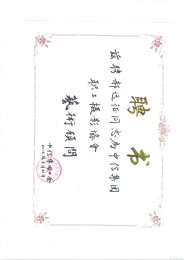 聘书
兹聘郝远征同志为中信集团
职工摄影协会
艺术顾问